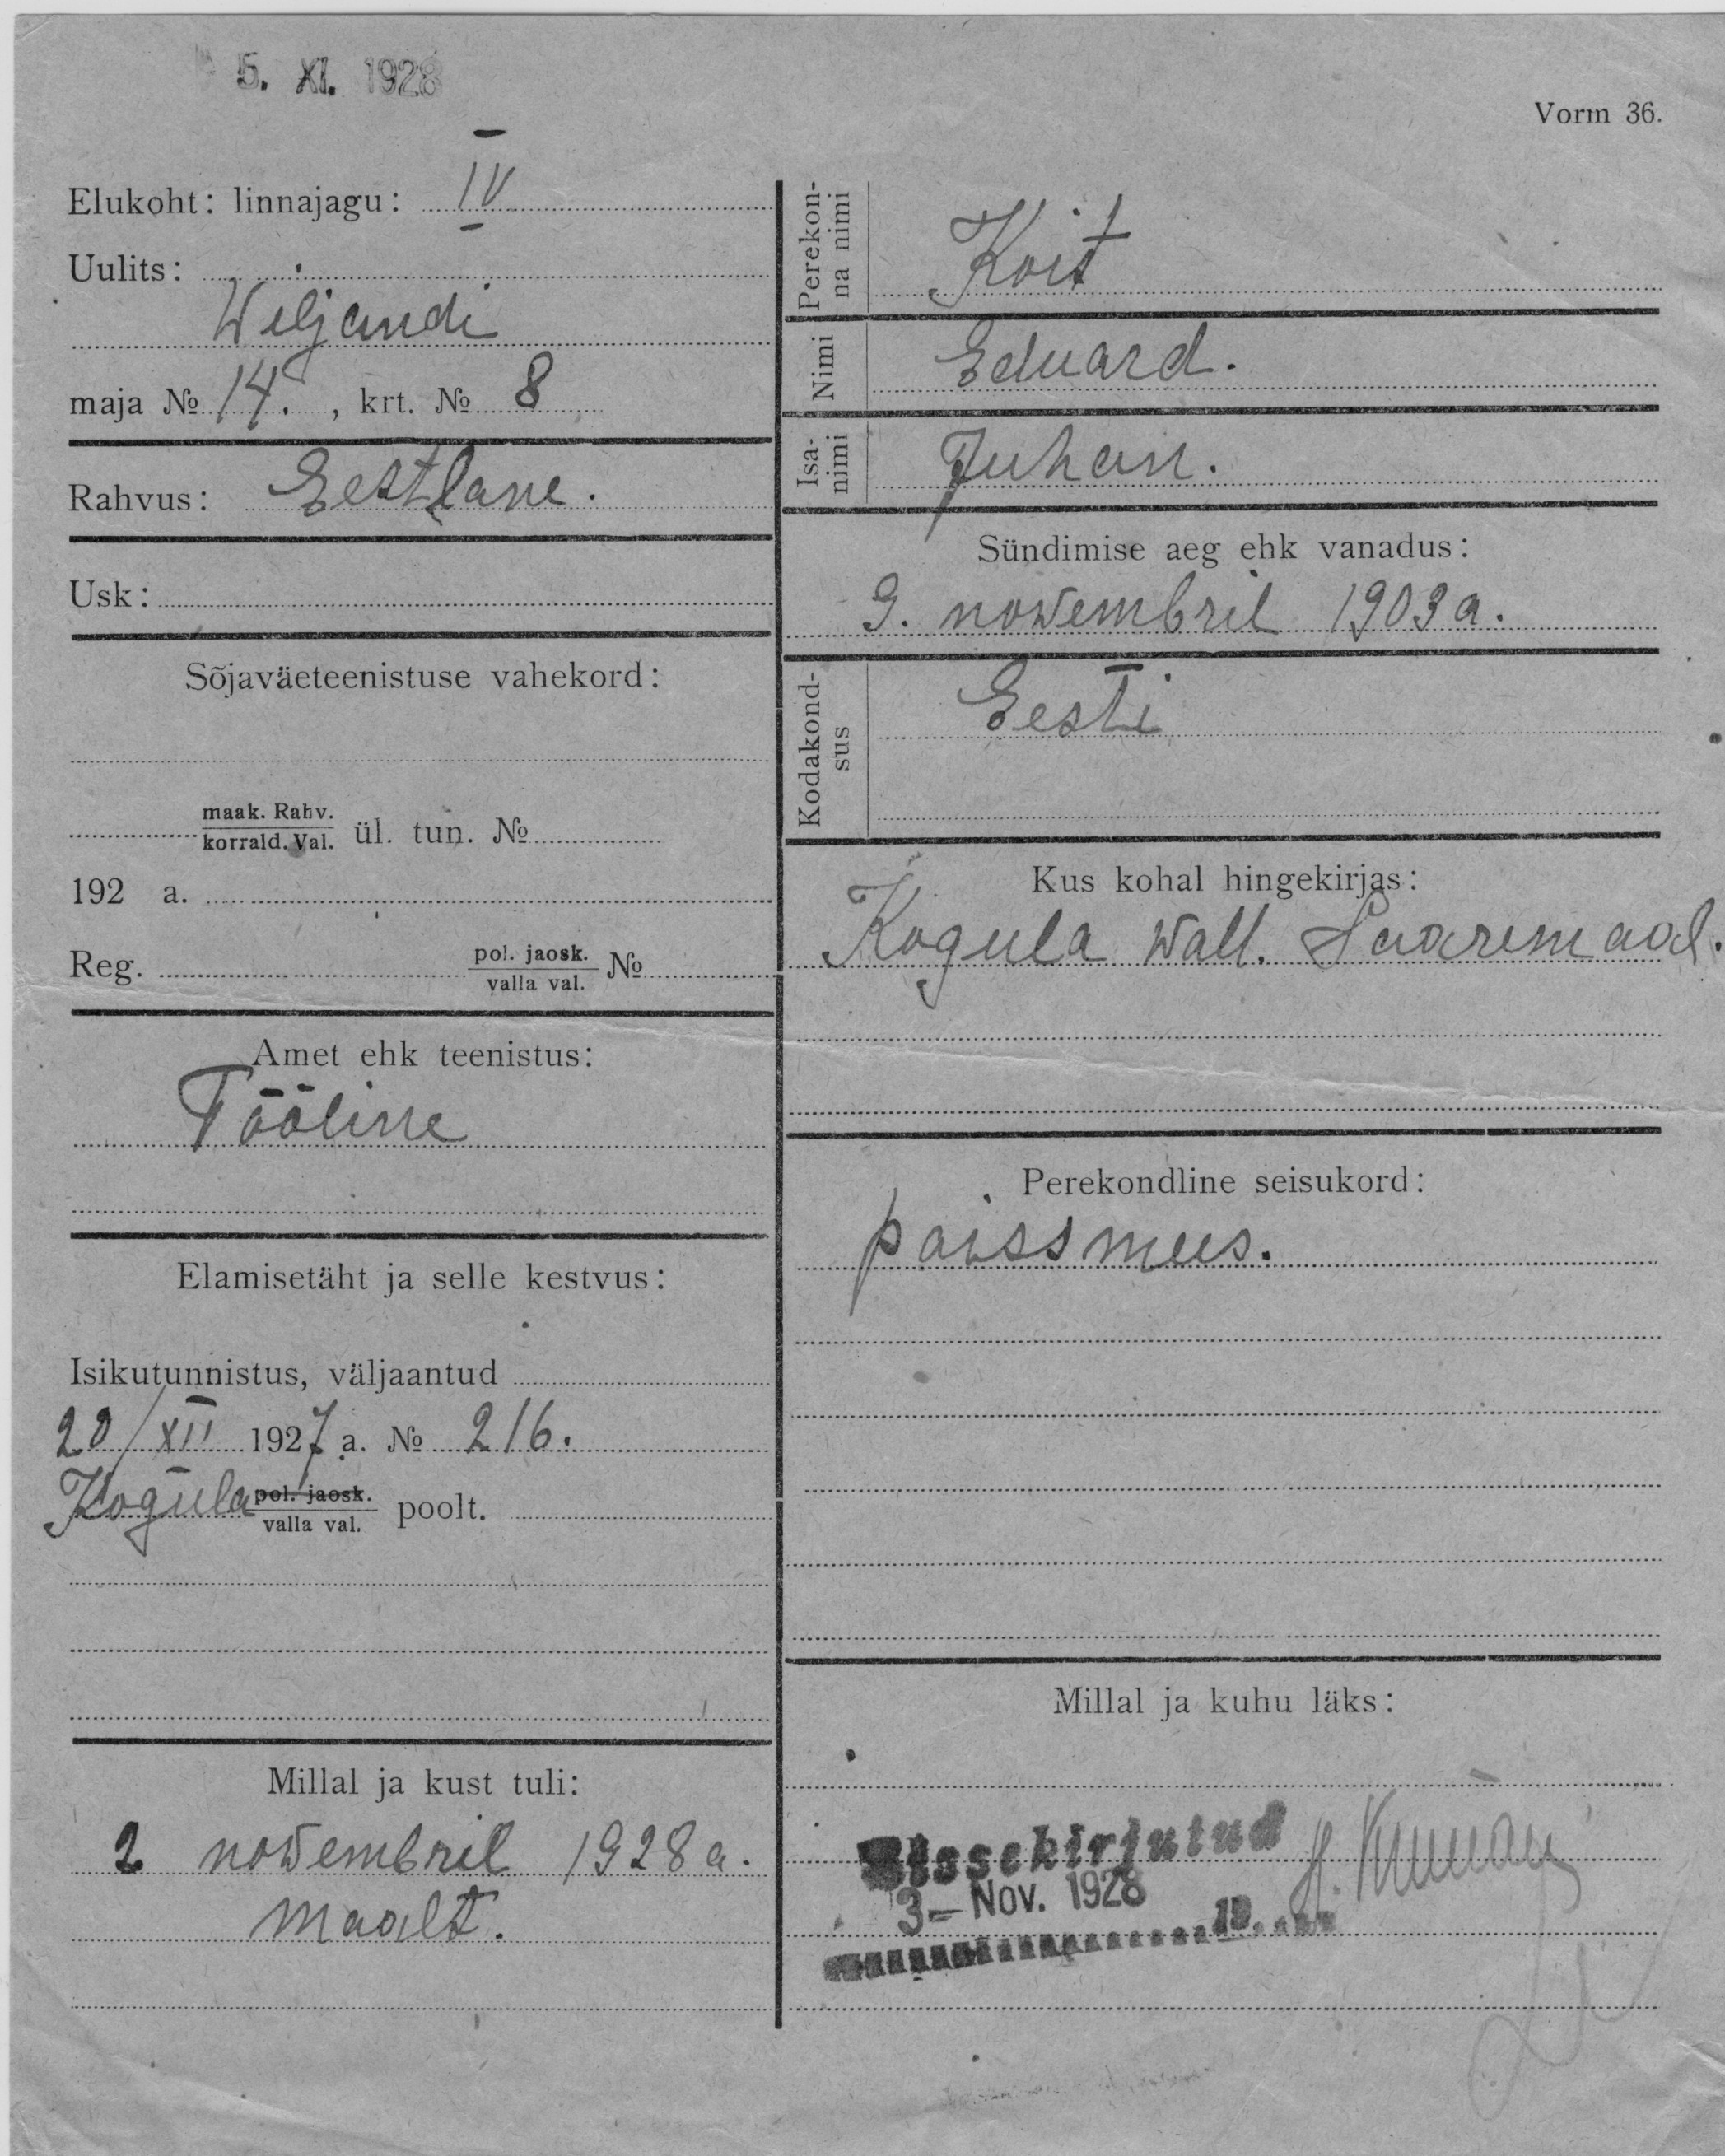 5. XI. 1928
Vorm 36.
Elukoht: linnajagu: IV
Uulits:
Weljandi
maja № 14. , krt. № 8
Rahvus: Eestlane.
Usk:
Sõjaväeteenistuse vahekord:
maak. Rahv.
korrald. Val. ül. tun. №
192 a.
Reg. pol. jaosk.
valla val. №
Amet ehk teenistus:
Tööline
Elamisetäht ja selle kestvus:
Isikutunnistus, väljaantud
20/XII 1927 a. № 216.
Kogula pol. jaosk.
valla val. poolt.
Millal ja kust tuli:
2 nowembril 1928 a.
maalt.
Perekon-
na nimi
Koit
Nimi Eduard.
Isa-
nimi
Juhan.
Sündimise aeg ehk vanadus:
9. nowembril 1903 a.
Kodakond-
sus
Eesti
Kus kohal hingekirjas:
Kogula wall. Saaremaal.
Perekondline seisukord:
poissmees.
Millal ja kuhu läks:
Sissekirjutud
3- Nov. 1928
19